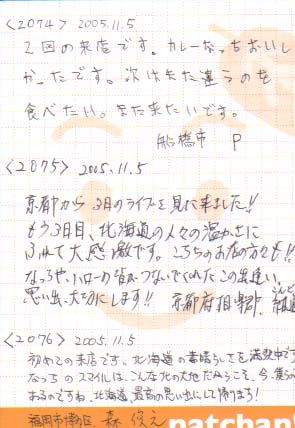 <2074> 2005.11.5
2回の来店です。カレーなっちおいし
かったです。次はまた違うのを
食べたい。また来たいです。
船橋市 P
<2075> 2005.11.5
京都から3日のライブを見に来ました!!
もう3日目、北海道の人々の温かさに
ふれて大感激です。こちらのお店の方々も!!
なっちや、ハロー の皆がつないでくれたこの出逢い、
思い出、大切にします!! 京都府相楽郡
<2076> 2005.11.5
初めての来店です。北海道の素晴らしさを満喫中です
なっちのスマイルは、こんな北の大地だからこそ、今、僕らの
あるのですね、北海道、最高の思い出にして帰ります!
福岡市博多区 森
natchan